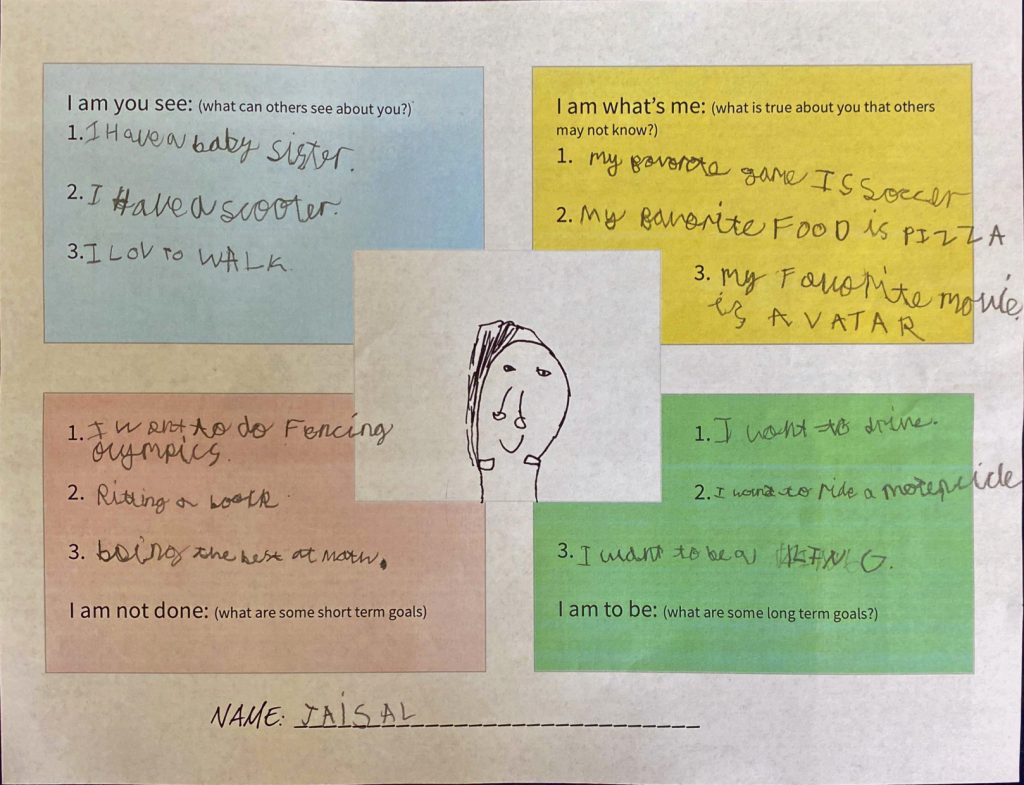 I am you see: (what can others see about you?)
1. I Have a baby sister.
2. I Have a scooter.
3. I LOV TO WALK.
I am what's me: (what is true about you that others
may not know?)
1. my favorote game IS Soccer
2. My favorite FOOD is PIZZA
3. my Favorite movie.
is AVATAR
1. I want to do Fencing
olympics.
2. Ritting a book
3. boing the best at Math.
I am not done: (what are some short term goals)
1. I want to drive.
2. I want to ride a motepcicle
3. I want to be a KING.
I am to be: (what are some long term goals?)
NAME: JAISAL